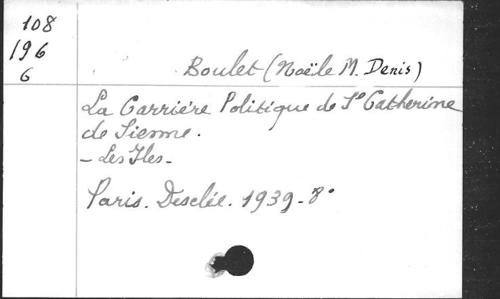 108
196
6
Boulet (Noële M. Denis)
La Carrière Politique de Ste Catherine
de Sienne.
- Les Iles -
Paris. Desclée. 1939 - 8°